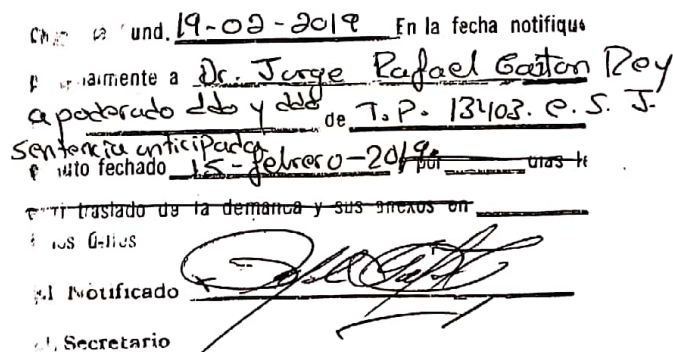 und. 19-02-2019 En la fecha notifique
mente a Dr. Jorge Rafael Gaitan Rey
apoderado ddo y ddo de T.P. 13403. C. S. J.
sentencia anticipada
auto fechado 15-febrero-2019. por dias le
traslado de la demanda y sus anexos en
utiles
El Notificado
El Secretario